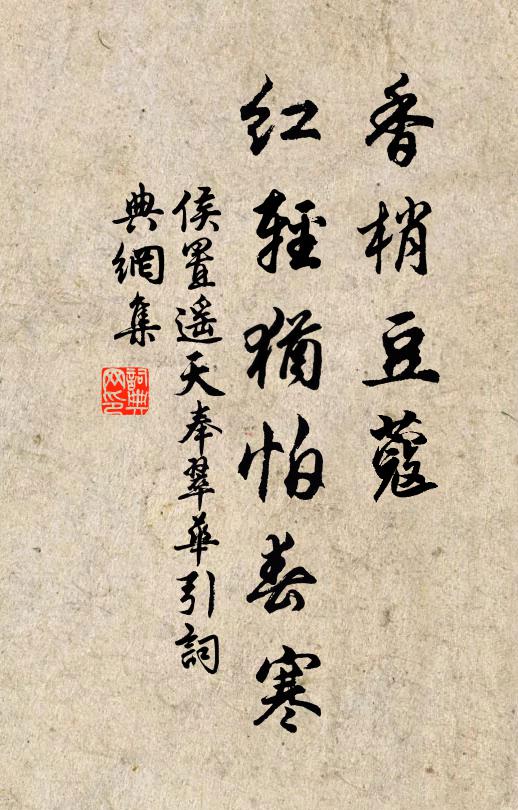 香梢豆蔻
红轻犹怕春寒
侯置遥天奉翠华引词
典网集
词典网印